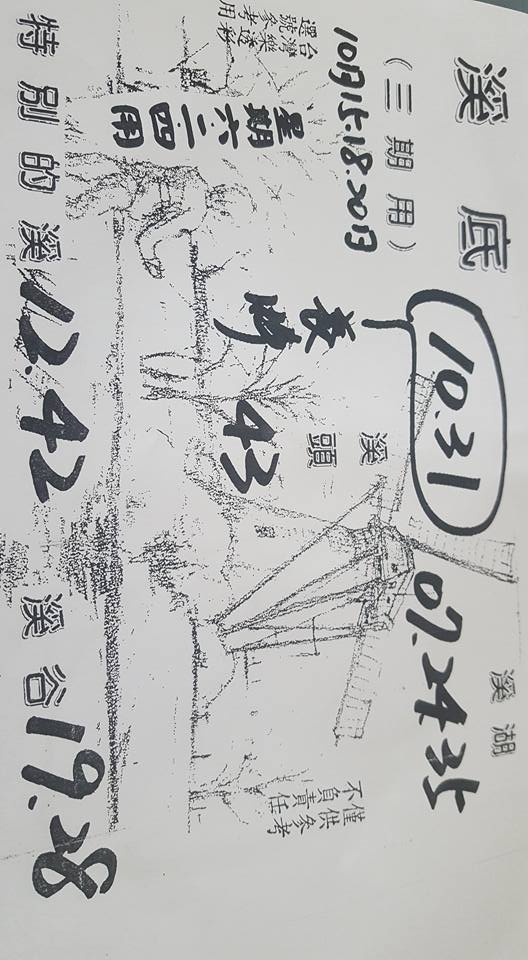 溪底
10.31
溪湖
07.24.35
（三期用）
10月15.18.20日
溪頭
43
台灣樂透彩
選號參考用
星期六二四用
僅供參考
不負責任
特別的溪 12.42
溪谷 19.28